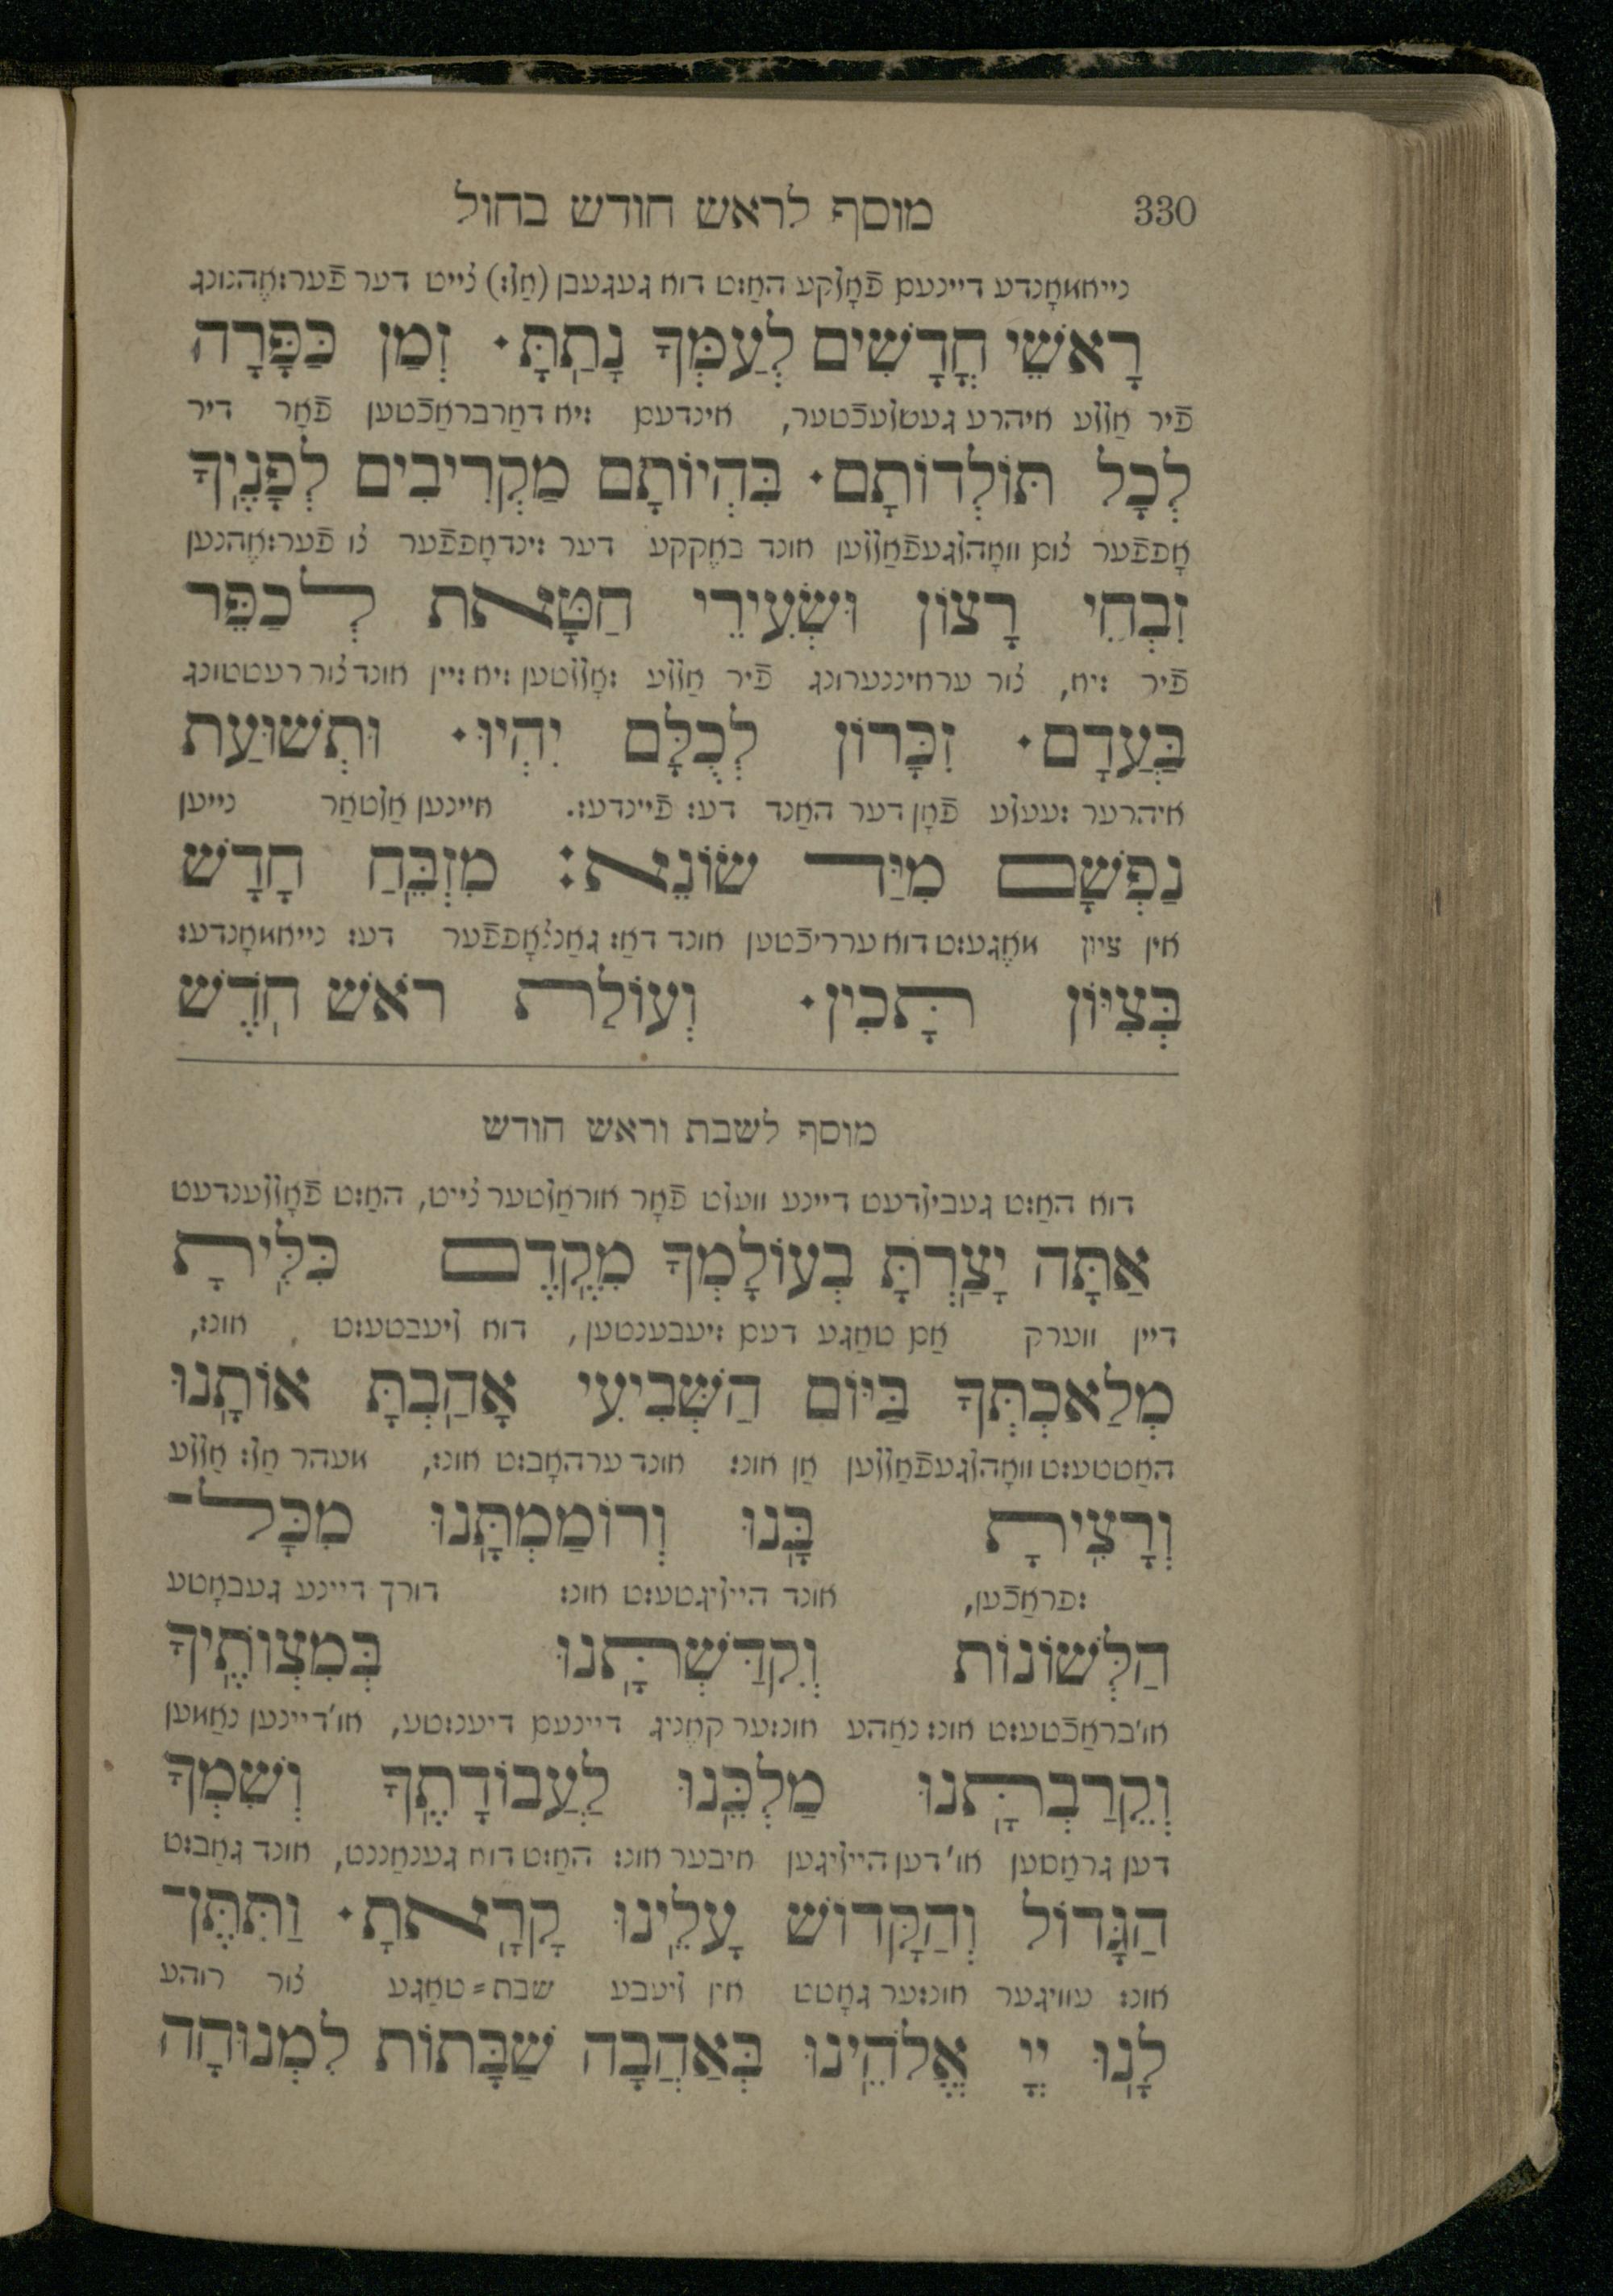 330 מוסף לראש חודש בחול
נייאמאָנדע דיינעם פֿאָלקע האַזט דוא געגעבן (אַלז) צייט דער פֿערזאֶהנונג
רָאשֵׁי חֳדָשִׁים לְעַמְּךָ נָתַתָּ· זְמַן כַּפָּרָה
פֿיר אַללע איהרע געשלעכֿטער, אינדעם זיא דאַרבראַכֿטען פֿאָר דיר
לְכָל תּוֹלְדוֹתָם· בִּהְיוֹתָם מַקְרִיבִים לְפָנֶיךָ
אָפּפֿער צום וואָהלגעפֿאַללען אונד באֶקקע דער זינדאָפּפֿער צו פֿערזאֶהנען
זִבְחֵי רָצוֹן וּשְׂעִירֵי חַטָּאת לְכַפֵּר
פֿיר זיא, צור ערחיננערונג פֿיר אַללע זאָללטען זיא זיין אונד צור רעטטונג
בַּעֲדָם· זִכָּרוֹן לְכֻלָּם יִהְיוּ· וּתְשׁוּעַת
איהרער זעעלע פֿאָן דער האַנד דעז פֿיינדעז. איינען אַלטאַר נייען
נַפְשָׁם מִיַּד שׂוֹנֵא: מִזְבֵּחַ חָדָשׁ
אין ציון מאֶגעזט דוא ערריכֿטען אונד דאַז גאַנצאָפּפֿער דעז נייאמאָנדעז
בְּצִיּוֹן תָּכִין· וְעוֹלַת רֹאשׁ חֹדֶשׁ
מוסף לשבת וראש חודש
דוא האַזט געבילדעט דיינע וועלט פֿאָר אוראַלטער צייט, האַזט פֿאָללענדעט
אַתָּה יָצַרְתָּ בְעוֹלָמְךָ מִקֶּדֶם כִּלִּיתָ
דיין ווערק אַם טאַגע דעם זיעבענטען, דוא ליעבטעזט אונז,
מְלַאכְתְּךָ בַּיּוֹם הַשְּׁבִיעִי אָהַבְתָּ אוֹתָנוּ
האַטטעזט וואָהלגעפֿאַללען אַן אונז אונד ערהאָבזט אונז, מעהר אַלז אַללע
וְרָצִיתָ בָּנוּ וְרוֹמַמְתָּנוּ מִכָּל־
זפראַכֿען, אונד הייליגטעזט אונז דורך דיינע געבאָטע
הַלְּשׁוֹנוֹת וְקִדַּשְׁתָּנוּ בְּמִצְוֹתֶיךָ
או'בראַכֿטעזט אונז נאַהע אונזער קאֶניג דיינעם דיענזטע, או'דיינען נאַמען
וְקֵרַבְתָּנוּ מַלְכֵּנוּ לַעֲבוֹדָתֶךָ וְשִׁמְךָ
דען גראָסען או'דען הייליגען איבער אונז האַזט דוא גענאַננט, אונד גאַבזט
הַגָּדוֹל וְהַקָּדוֹשׁ עָלֵינוּ קָרָאתָ· וַתִּתֶּן־
אונז עוויגער אונזער גאָטט אין ליעבע שבת=טאַגע צור רוהע
לָנוּ יְיָ אֱלֹהֵינוּ בְּאַהֲבָה שַׁבָּתוֹת לִמְנוּחָה